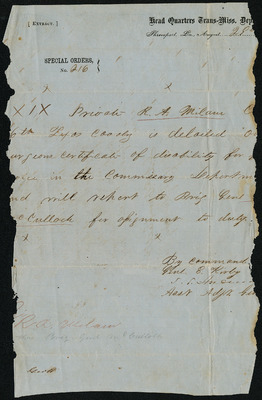 [ EXTRACT. ]
Head Quarters Trans-Miss. Dep
Shreveport, La., August
SPECIAL ORDERS,
No. 216
XIX Private R. A. Milam
Texas is detailed
Surgeons certificate of disability for
in the Commissary Departm
nd will report to Brig Genl
Culloch for assignment to duty.
x x
By command
Genl E. Kirby
Asst Adjt
R A Milam